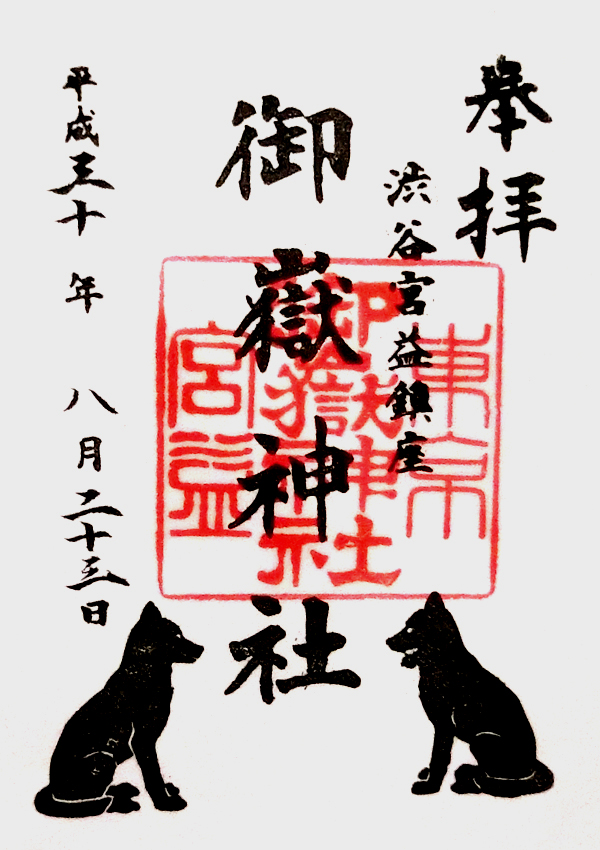 奉拝
渋谷宮益鎮座
御嶽神社
平成三十年 八月二十三日
東京
御嶽神社
宮益